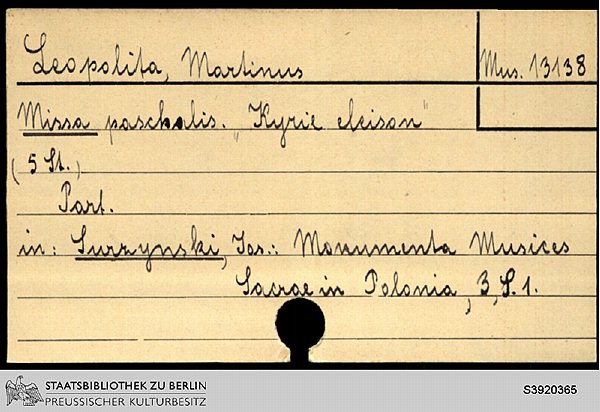 Leopolita, Martinus
Mus. 13138
Missa paschalis. „Kyrie eleison“
(5 St.)
Part.
in: Surzynski, Jos.: Monumenta Musices
Sacrae in Polonia, 3, S. 1.
STAATSBIBLIOTHEK ZU BERLIN
PREUSSISCHER KULTURBESITZ
S3920365